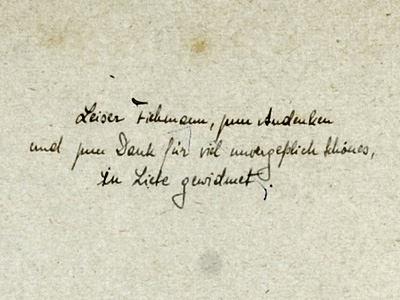 Leiser Fichmann, zum Andenken
und zum Dank für viel unvergeßlich Schönes,
in Liebe gewidmet.